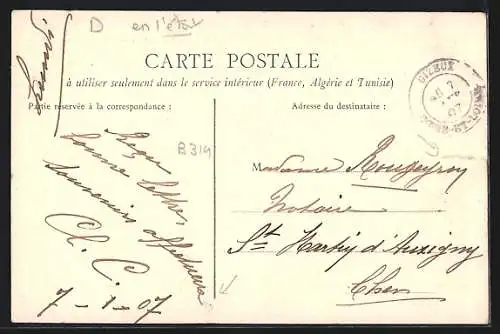 D en l'état
CARTE POSTALE
à utiliser seulement dans le service intérieur (France, Algérie et Tunisie)
Partie réservée à la correspondance :
Adresse du destinataire :
B314
Reçu
bonne lettre
souvenirs affectueux
Ch. C.
7-1-07
Madame Rougeyron
Notaire
St Martin d'Auxigny
Cher
GIZEUX
INDRE-ET-LOIRE